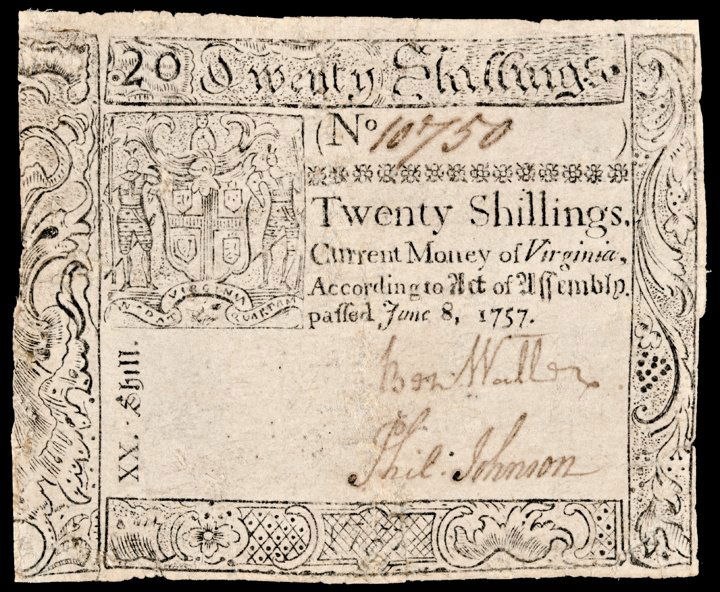 20 Twenty Shillings.
(No 10750 )
Twenty Shillings.
Current Money of Virginia,
According to Act of Assembly.
paſſed June 8, 1757.
EN DAT VIRGINIA QUARTAM
XX. Shill.
Ben: Waller
Phil: Johnson